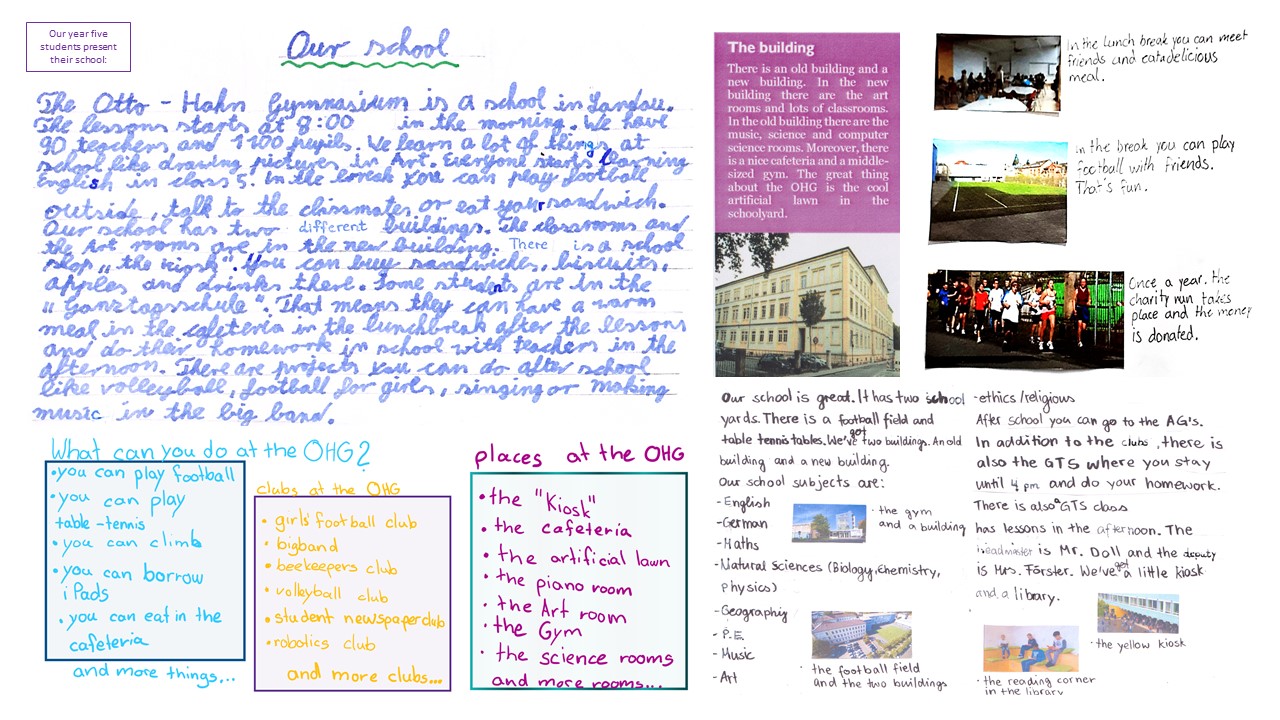 Our year five
students present
their school:
Our school
The Otto - Hahn Gymnasium is a school in Landau.
The lessons starts at 8:00 in the morning. We have
90 teachers and 1100 pupils. We learn a lot of things at
school like drawing pictures in Art. Everyone starts learning
English in class 5. In the break you can play football
outside, talk to the classmates or eat your sandwich.
Our school has two different buildings. The classrooms and
the Art rooms are in the new building. There is a school
shop „ the kiosk". You can buy sandwiches, biscuits,
apples and drinks there. Some students are in the
"Ganztagsschule". That means they can have a warm
meal in the cafeteria in the lunchbreak after the lessons
and do their homework in school with teachers in the
afternoon. There are projects you can do after school
like volleyball, football for girls, singing or making
music in the big band.
What can you do at the OHG?
•you can play football
•you can play
table-tennis
•you can climb
•you can borrow
iPads
•you can eat in the
cafeteria
and more things...
clubs at the OHG
• girls' football club
• bigband
• beekeepers club
• volleyball club
• student newspaperclub
• robotics club
and more clubs...
places at the OHG
•the "Kiosk"
• the cafeteria
• the artificial lawn
• the piano room
• the Art room
• the Gym
• the science rooms
and more rooms...
The building
There is an old building and a
new building. In the new
building there are the art
rooms and lots of classrooms.
In the old building there are the
music, science and computer
science rooms. Moreover, there
is a nice cafeteria and a middle-
sized gym. The great thing
about the OHG is the cool
artificial lawn in the
schoolyard.
In the lunch break you can meet
friends and eat a delicious
meal.
in the break you can play
football with friends.
That's fun.
Once a year. the
charity run takes
place and the money
is donated.
Our school is great. It has two school
yards. There is a football field and
table tennis tables. We've got two buildings. An old
building and a new building.
Our school subjects are:
-English
-German
-Maths
-Natural Sciences (Biology, chemistry,
physics)
-Geography
- P.E.
- Music
- Art
• the gym
and a building
• the football field
and the two buildings
-ethics/religious
After school you can go to the AG's.
In addition to the clubs, there is
also the GTS where you stay
until 4 pm and do your homework.
There is also a GTS class
has lessons in the afternoon. The
headmaster is Mr. Doll and the deputy
is Mrs. Förster. We've got a little kiosk
and a library.
• the yellow kiosk
• the reading corner
in the library